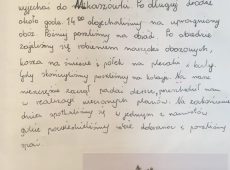 wyjechał do Mikaszówki. Po długiej drodze
około godz. 14⁰⁰ dojechaliśmy na upragniony
obóz. Potem poszliśmy na obiad. Po obiedzie
zajęliśmy się robieniem namiotów obozowych,
kosza na śmieci i półek na plecaki i buty.
Gdy skończyliśmy poszliśmy na kolację. Na nasze
nieszczęście zaczął padać deszcz, przeszkodził nam
w realizacji wieczornych planów. Na zakończenie
dnia spotkaliśmy się w jednym z namiotów
gdzie powiedzieliśmy sobie dobranoc i poszliśmy
spać.